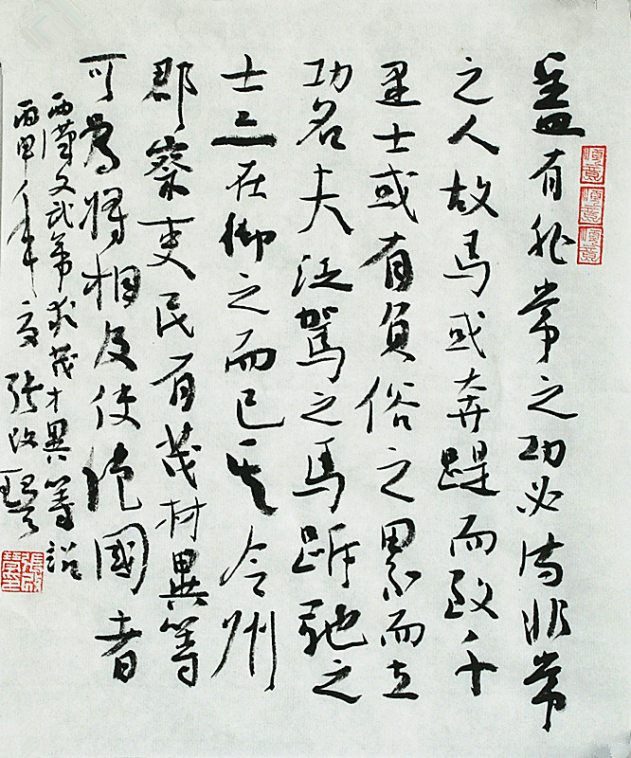 蓋有非常之功必待非常
之人故馬或奔踶而致千
里士或有負俗之累而立
功名夫泛駕之馬跅弛之
士亦在御之而已其令州
郡察吏民有茂材異等
可為將相及使絕國者
西漢文武帝求茂才異等詔
丙申年夏張